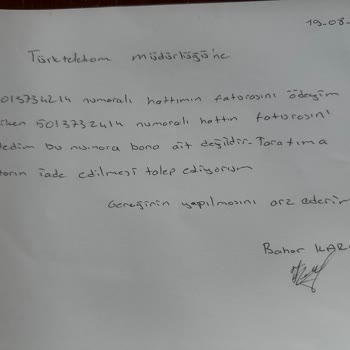 19.08.
Türktelekom müdürlüğü'ne
5013734214 numaralı hattımın faturasını ödeyim
iken 5013732414 numaralı hattın faturasını
dedim bu numara bana ait değildir. Tarafıma
tarın iade edilmesi talep ediyorum
Gereğinin yapılmasını arz ederim
Bahar KARA